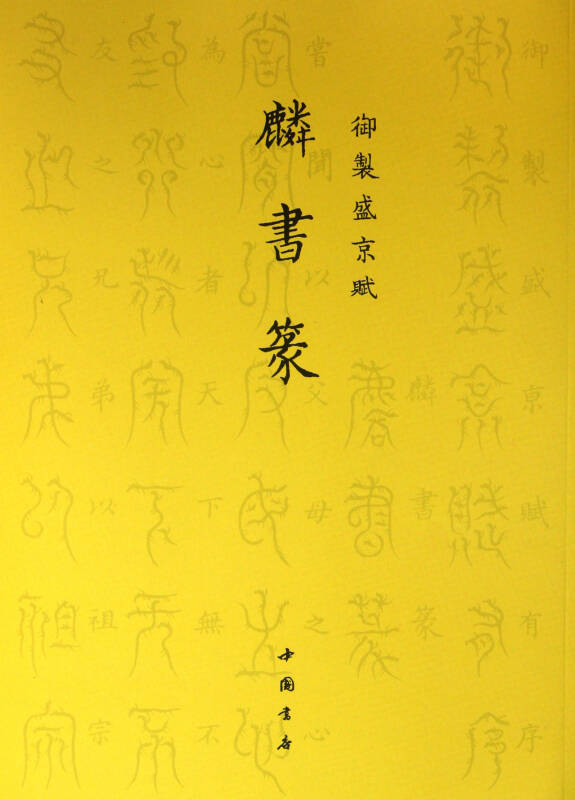 御製盛京賦
麟書篆
中國書店
御製盛京賦有序
麟書篆
嘗聞以父母之心
為心者天下無不
友之兄弟以祖宗